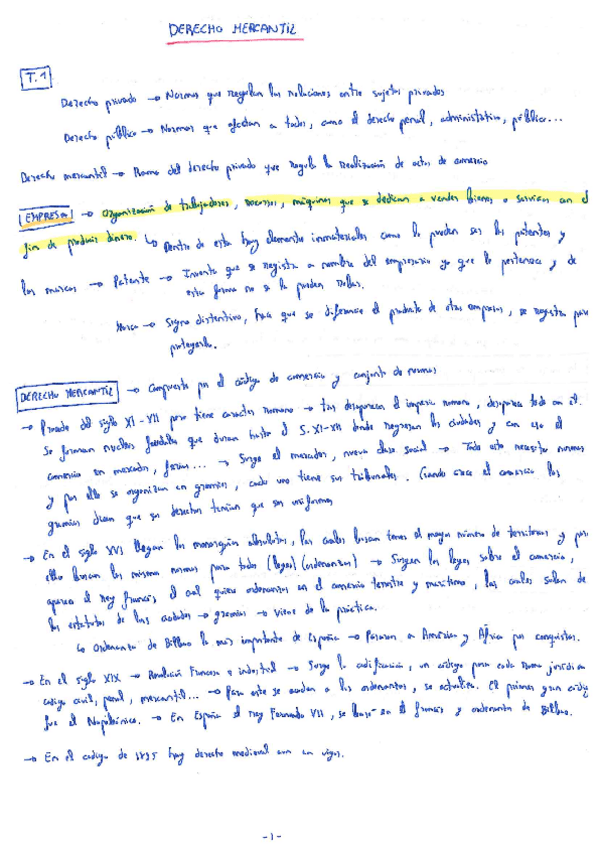 DERECHO MERCANTIL
T.1
Derecho privado → Normas que regulan las relaciones entre sujetos privados
Derecho público → Normas que afectan a todos, como el derecho penal, administrativo, público...
Derecho mercantil → Rama del derecho privado que regula la realización de actos de comercio
EMPRESA → Organización de trabajadores, recursos, máquinas que se dedican a vender bienes o servicios con el
fin de producir dinero. ↳ Dentro de esta hay elementos inmateriales como lo pueden ser las patentes y
las marcas → Patente → Invento que se registra a nombre del empresario ya que le pertenece y de
esta forma no se la pueden robar.
Marca → Signo distintivo, hace que se diferencie el producto de otras empresas, se registra para
protegerlo.
DERECHO MERCANTIL → Compuesto por el código de comercio y conjunto de normas
→ Procede del siglo XI-VII pero tiene carácter romano → tras desaparecer el imperio romano, desaparece todo con él.
Se forman nucleos feudales que duran hasta el S. XI-XII donde regresan las ciudades y con eso el
comercio en mercados, ferias... → Surge el mercader, nueva clase social → Todo esto necesita normas
y por ello se organizan en gremios, cada uno tiene sus tribunales. Cuando crece el comercio los
gremios dicen que sus derechos tenían que ser uniformes
→ En el siglo XVI llegan las monarquías absolutas, las cuales buscan tener el mayor número de territorios y por
ello buscan las mismas normas para todos (leyes) (ordenanzas) → Surgen las leyes sobre el comercio,
aparece el Rey francés, el cual quiere ordenanzas en el comercio terrestre y marítimo, las cuales salen de
los estatutos de las ciudades → gremios → viene de la práctica.
↳ Ordenanza de Bilbao la más importante de España → Pasaron a América y África por conquistas.
→ En el siglo XIX → Revolución Francesa e industrial → Surge la codificación, un código para cada rama jurídica
código civil, penal, mercantil... → Para esto se ayudan a las ordenanzas, se actualiza. El primer gran código
fue el Napoleónico. → En España el rey Fernando VII, se basó en el francés y ordenanza de Bilbao.
→ En el código de 1895 hay derecho medieval aun en vigor.
-1-